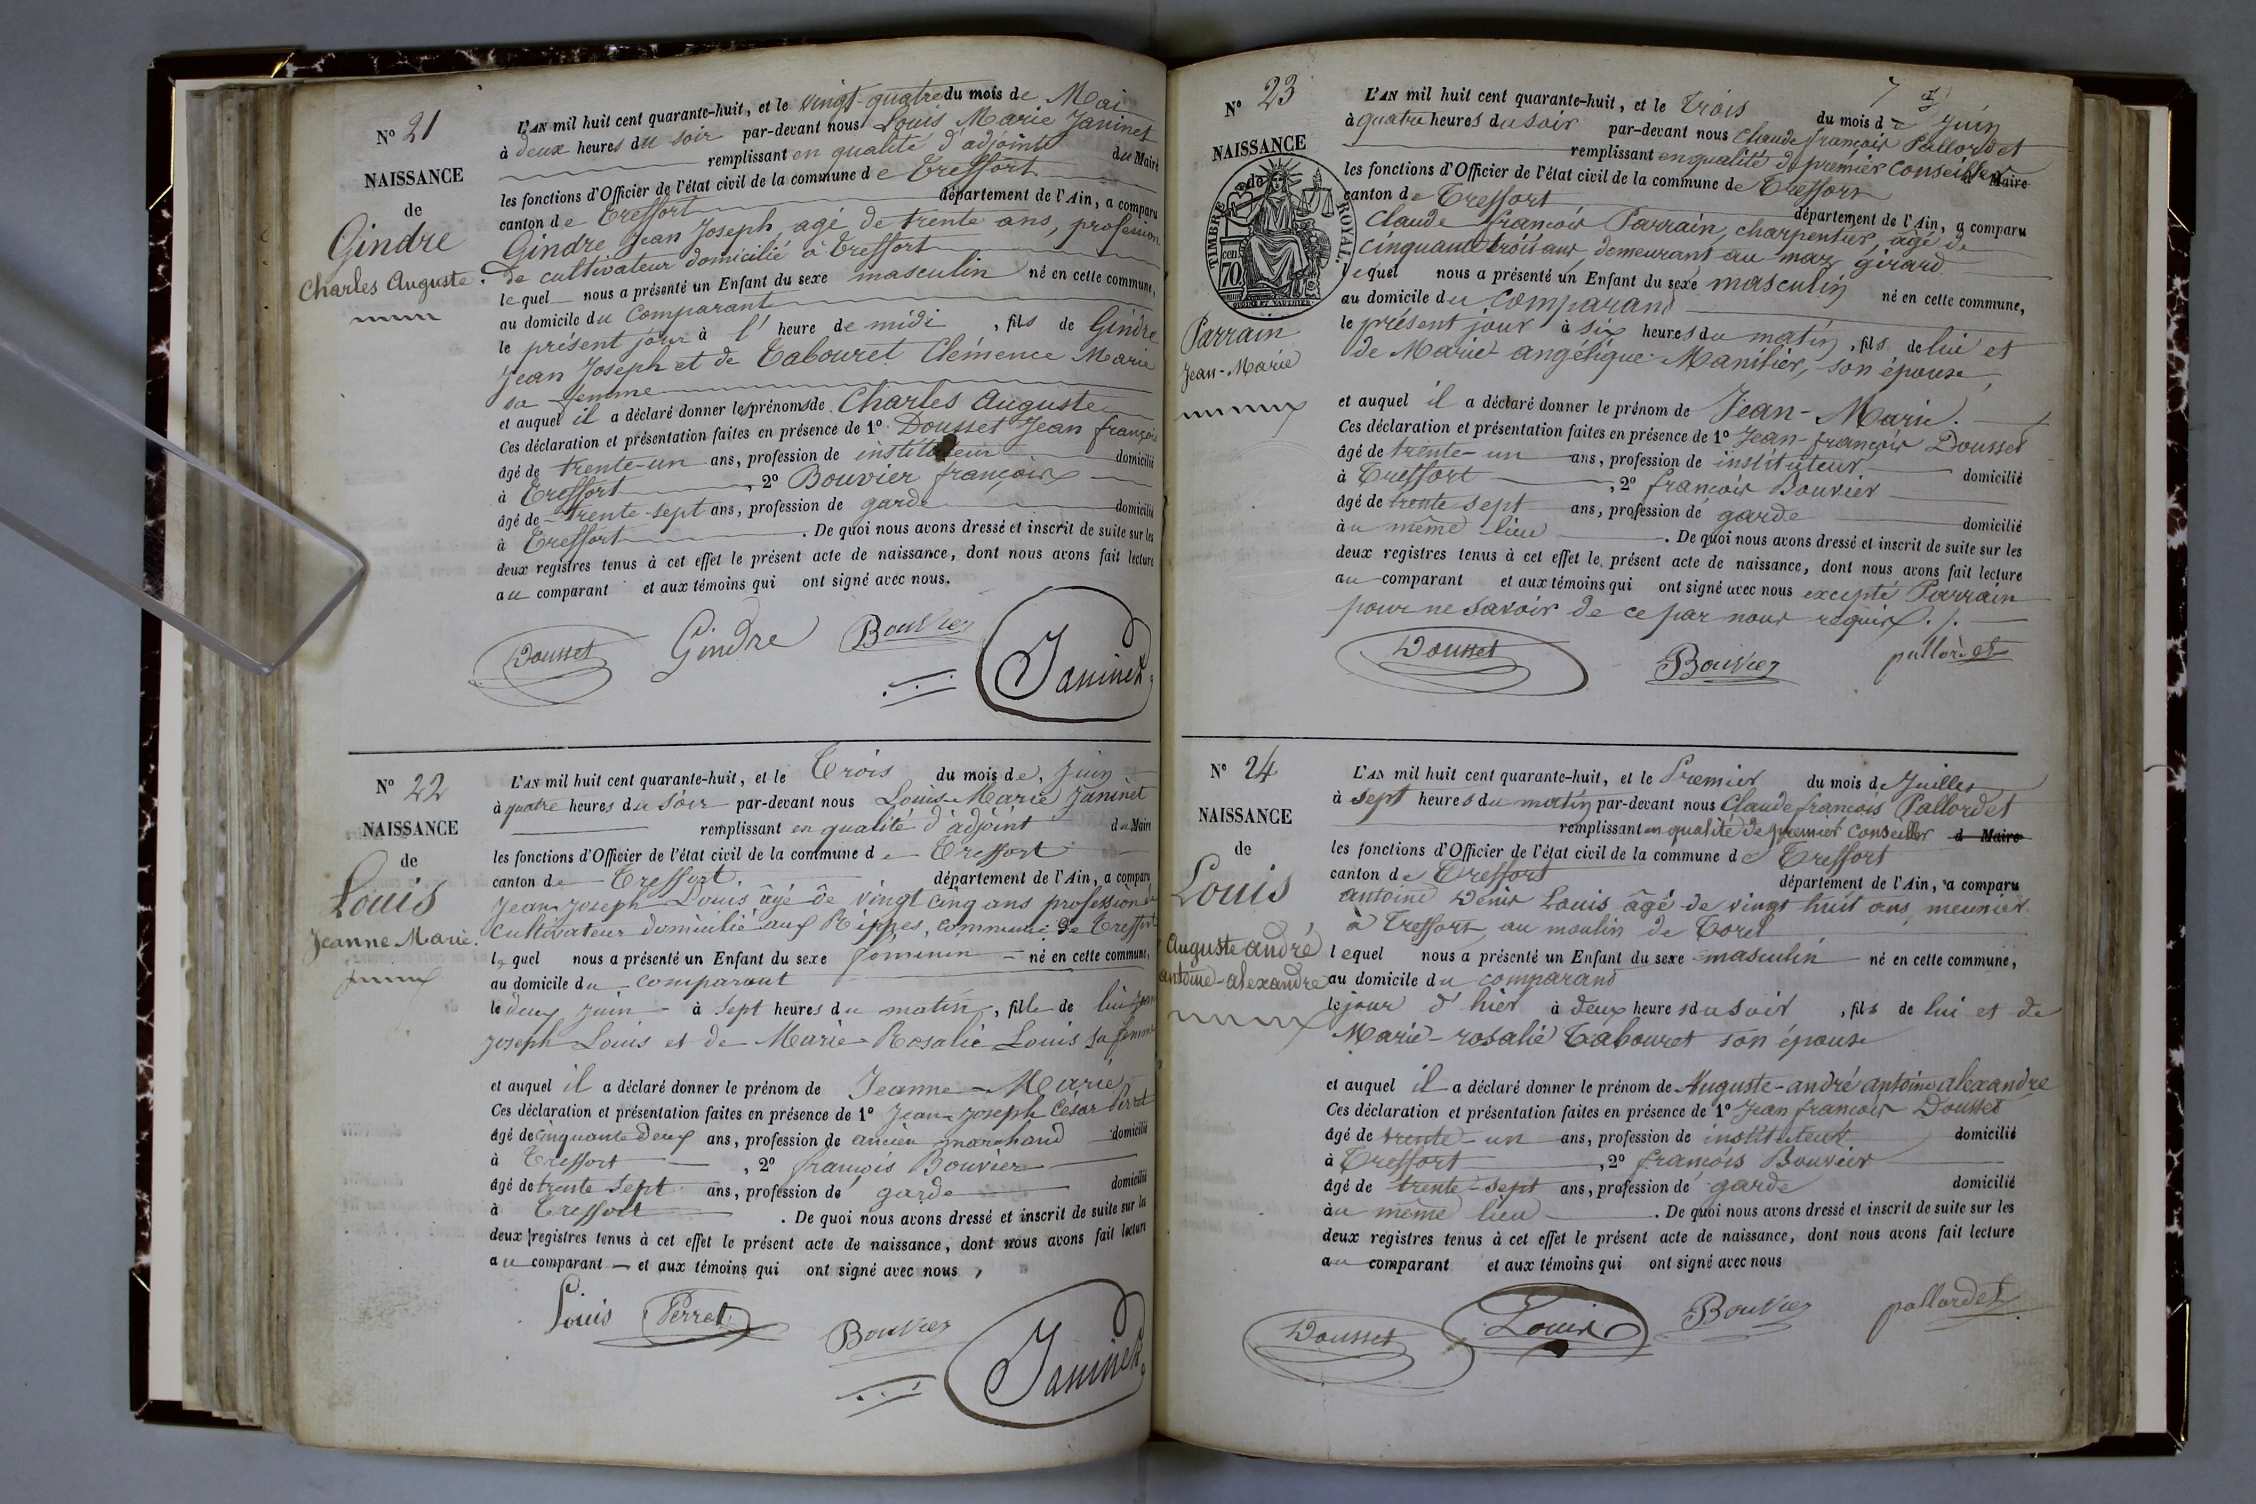 N° 21
NAISSANCE
de
Gindre
Charles Auguste.
L'AN mil huit cent quarante-huit, et le vingt-quatre du mois de Mai
à deux heures du soir par-devant nous Louis Marie Janinet
remplissant en qualité d'adjoint du Maire
les fonctions d'Officier de l'état civil de la commune de Treffort
canton de Treffort département de l'Ain, a comparu
Gindre Jean Joseph, agé de trente ans, profession
de cultivateur domicilié à Treffort
lequel nous a présenté un Enfant du sexe masculin né en cette commune,
au domicile du Comparant
le présent jour à l' heure de midi, fils de Gindre
Jean Joseph et de Tabouret Clémence Marie
sa femme
et auquel il a déclaré donner les prénoms de Charles Auguste
Ces déclaration et présentation faites en présence de 1° Dousset Jean françois
âgé de trente-un ans, profession de instituteur domicilié
à Treffort, 2° Bouvier françois
âgé de trente-sept ans, profession de garde domicilié
à Treffort. De quoi nous avons dressé et inscrit de suite sur les
deux registres tenus à cet effet le présent acte de naissance, dont nous avons fait lecture
au comparant et aux témoins qui ont signé avec nous.
Dousset Gindre Bouvier Janinet
N° 22
NAISSANCE
de
Louis
Jeanne Marie.
L'AN mil huit cent quarante-huit, et le Trois du mois de Juin
à quatre heures du soir par-devant nous Louis-Marie Janinet
remplissant en qualité d'adjoint du Maire
les fonctions d'Officier de l'état civil de la commune de Treffort
canton de Treffort département de l'Ain, a comparu
Jean-Joseph Louis âgé de vingt cinq ans profession de
Cultivateur domicilié aux Rippes, commune de Treffort
lequel nous a présenté un Enfant du sexe féminin né en cette commune,
au domicile du comparant
le deux juin à sept heures du matin, fille de lui Jean
Joseph Louis et de Marie-Rosalie Louis sa femme
et auquel il a déclaré donner le prénom de Jeanne-Marie
Ces déclaration et présentation faites en présence de 1° Jean-Joseph César Perret
âgé de cinquante deux ans, profession de ancien marchand domicilié
à Treffort, 2° françois Bouvier
âgé de trente sept ans, profession de garde domicilié
à Treffort. De quoi nous avons dressé et inscrit de suite sur les
deux registres tenus à cet effet le présent acte de naissance, dont nous avons fait lecture
au comparant et aux témoins qui ont signé avec nous,
Louis Perret Bouvier Janinet
7
N° 23
NAISSANCE
de
TIMBRE ROYAL.
cen 70
Parrain
Jean-Marie
L'AN mil huit cent quarante-huit, et le Trois du mois de Juin
à quatre heures du soir par-devant nous Claude françois Pallordet
remplissant en qualité de premier Conseiller d Maire
les fonctions d'Officier de l'état civil de la commune de Treffort
canton de Treffort département de l'Ain, a comparu
Claude françois Parrain, charpentier, âgé de
cinquante trois ans, demeurant au mas girard
lequel nous a présenté un Enfant du sexe masculin né en cette commune,
au domicile du comparand
le présent jour à six heures du matin, fils de lui et
de Marie-angélique Manilier, son épouse,
et auquel il a déclaré donner le prénom de Jean-Marie.
Ces déclaration et présentation faites en présence de 1° Jean-françois Dousset
âgé de trente-un ans, profession de instituteur domicilié
à Treffort, 2° françois Bouvier
âgé de trente sept ans, profession de garde domicilié
au même lieu. De quoi nous avons dressé et inscrit de suite sur les
deux registres tenus à cet effet le présent acte de naissance, dont nous avons fait lecture
au comparant et aux témoins qui ont signé avec nous excepté Parrain
pour ne savoir de ce par nous requis ./.
Dousset Bouvier pallordet
N° 24
NAISSANCE
de
Louis
Auguste andré
antoine-alexandre
L'AN mil huit cent quarante-huit, et le Premier du mois de Juillet
à sept heures du matin par-devant nous Claude françois Pallordet
remplissant en qualité de premier Conseiller d Maire
les fonctions d'Officier de l'état civil de la commune de Treffort
canton de Treffort département de l'Ain, a comparu
antoine Denis Louis âgé de vingt huit ans, meunier
à Treffort au moulin de Corel
lequel nous a présenté un Enfant du sexe masculin né en cette commune,
au domicile du comparand
le jour d'hier à deux heures du soir, fils de lui et de
Marie-rosalie Tabouret son épouse
et auquel il a déclaré donner le prénom de Auguste-andré antoine alexandre
Ces déclaration et présentation faites en présence de 1° Jean françois Dousset
âgé de trente-un ans, profession de instituteur domicilié
à Treffort, 2° françois Bouvier
âgé de trente-sept ans, profession de garde domicilié
au même lieu. De quoi nous avons dressé et inscrit de suite sur les
deux registres tenus à cet effet le présent acte de naissance, dont nous avons fait lecture
au comparant et aux témoins qui ont signé avec nous
Dousset Louis Bouvier pallordet